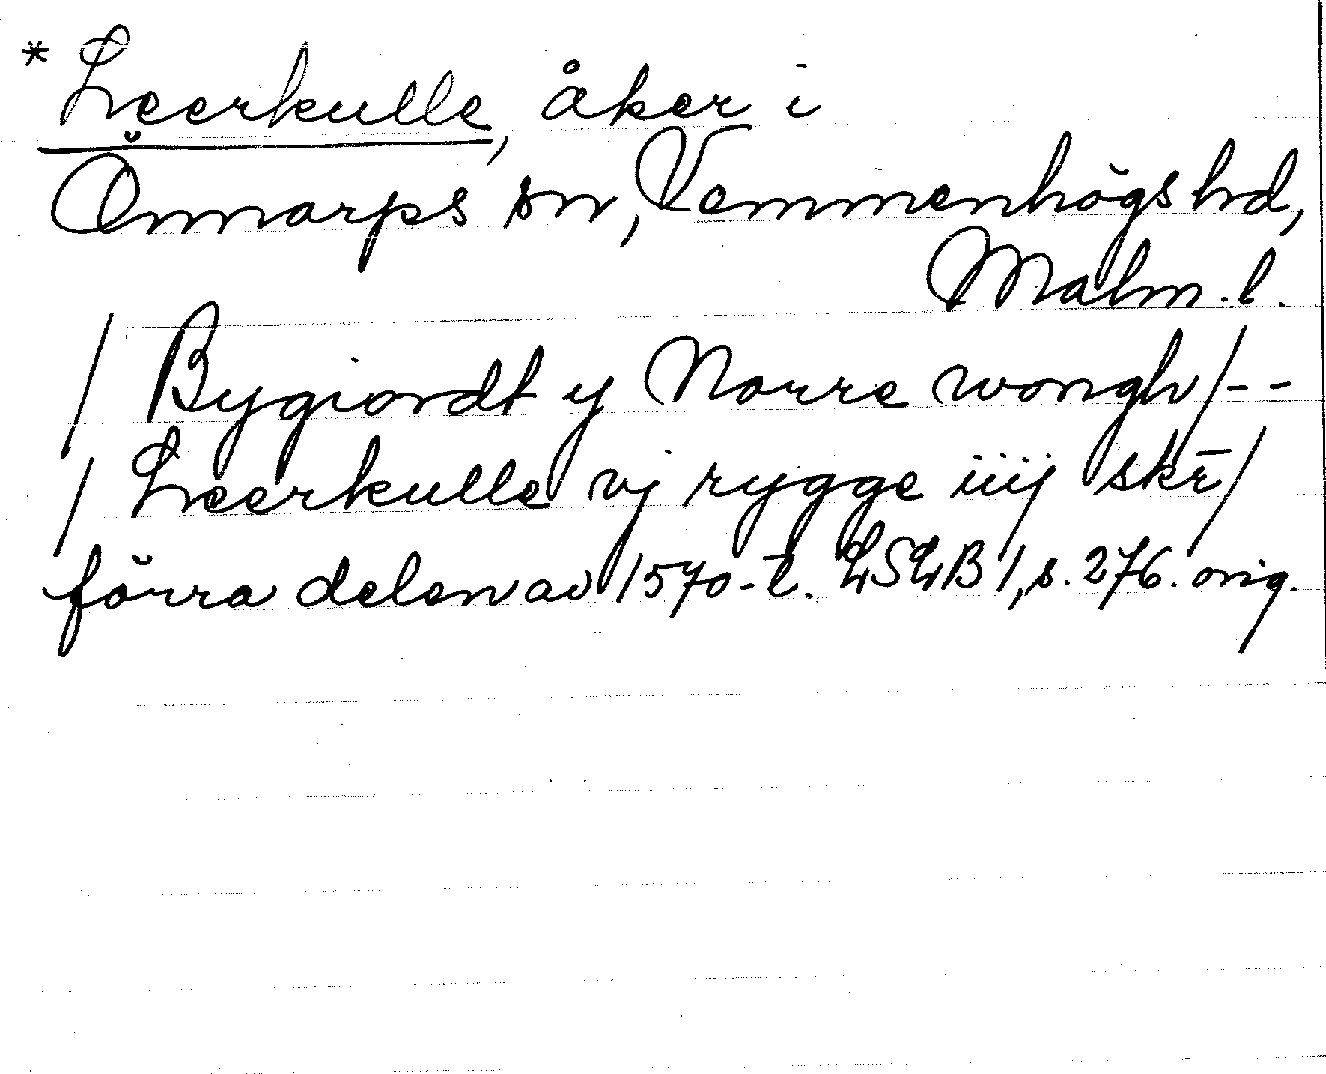 * Leerkulle, åker i
Önnarps sn, Vemmenhögs hd,
Malm. l.
/ Bygiordt y Norre wongh /--
/ Leerkulle vj rygge iiij skr̄ /
förra delen av 1570-t. LSLB 1, s. 276. orig.